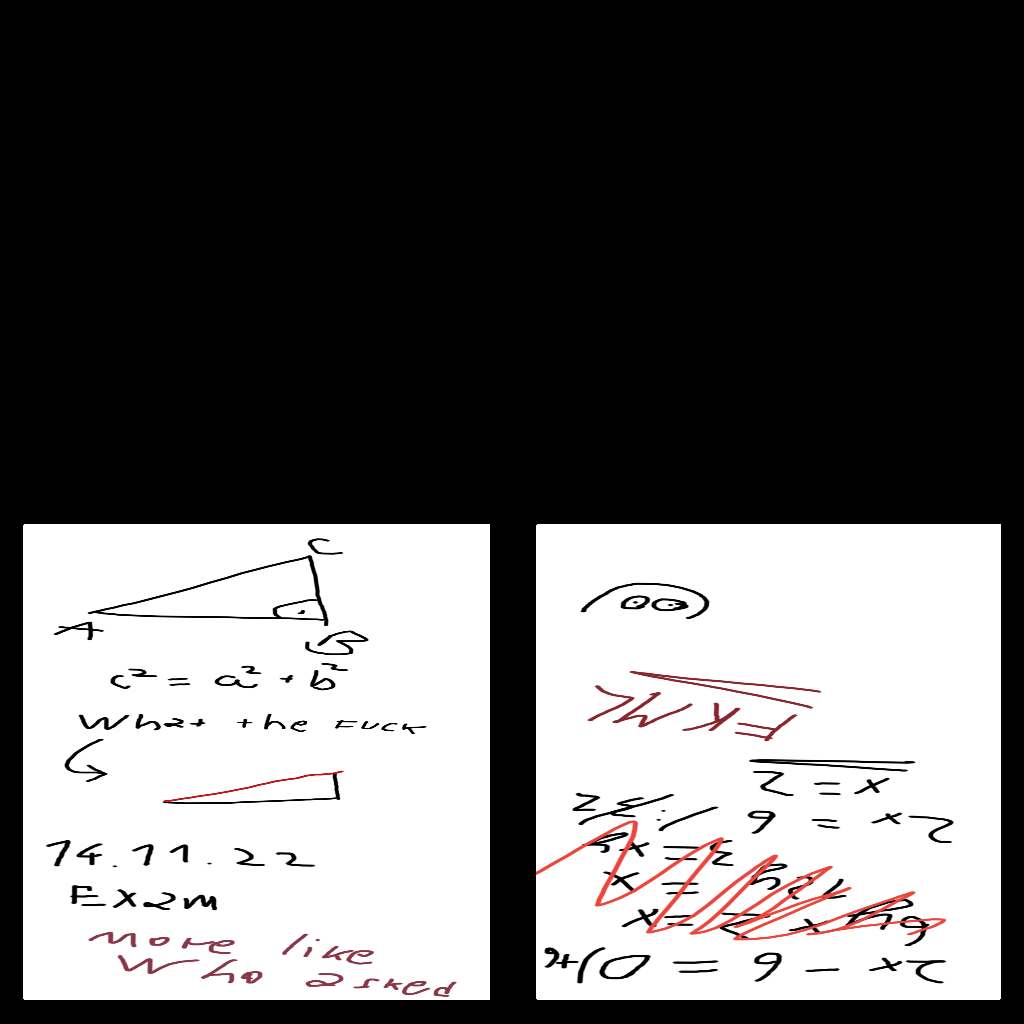 C
A
B
c² = a² + b²
What the FUCK
14.11.22
Exam
more like
Who asked
2x - 6 = 0 /+6
2x = 6 /:2
x = 2
FKML